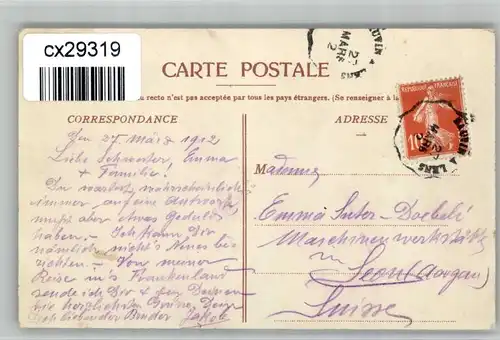 cx29319
CARTE POSTALE
du recto n'est pas acceptée par tous les pays étrangers. (Se renseigner à la
CORRESPONDANCE
ADRESSE
REPUBLIQUE FRANÇAISE
10
LENS
MARS
den 27. März 1912
Liebe Schwester, Emma
& Familie!
Du wartest wahrscheinlich
immer auf eine Antwort
musst aber etwas Geduld
haben. – Ich kann Dir
nämlich nichts Neues be-
richten. – Von meiner
Reise in's Frankenland
sende ich Dir & den Deinen
die herzlichsten Grüsse, Dein
Dich liebender Bruder Jakob
Madame
Emma Suter-Doebeli
Maschinenwerkstätte
in
Seon (Aargau)
Suisse